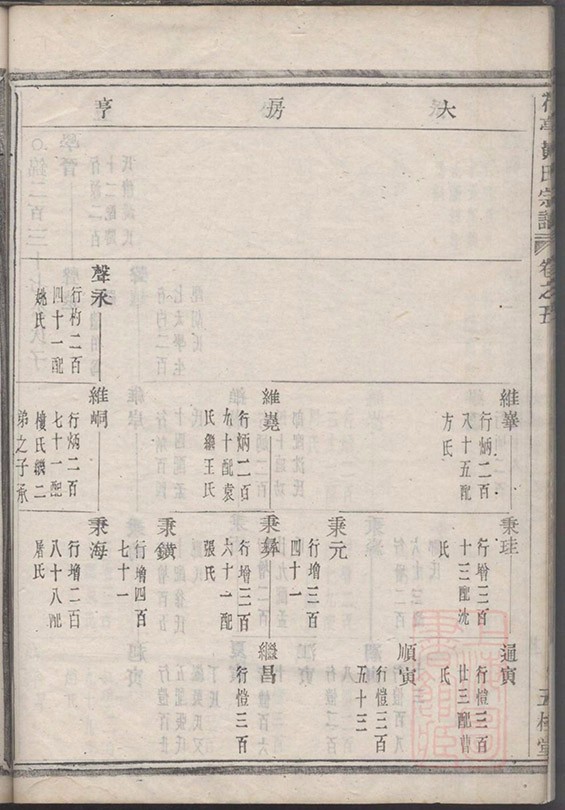 黃氏宗譜
卷之五
五桂堂
大房亨
維崋
行炳二百
八十五配
方氏
秉珪
行增三百
十三配沈
氏
通寅
行愷三百
廿三配曹
氏
順寅
行愷三百
五十三
秉元
行增三百
四十一
維堯
行炳二百
九十配袁
氏繼王氏
秉彝
行增三百
六十一配
張氏
繼昌
行愷三百
秉鐄
行增四百
七十一
聲永
行杓二百
四十一配
姚氏
維峒
行炳二百
七十一配
樓氏繼二
弟之子承
秉海
行增二百
八十八配
屠氏